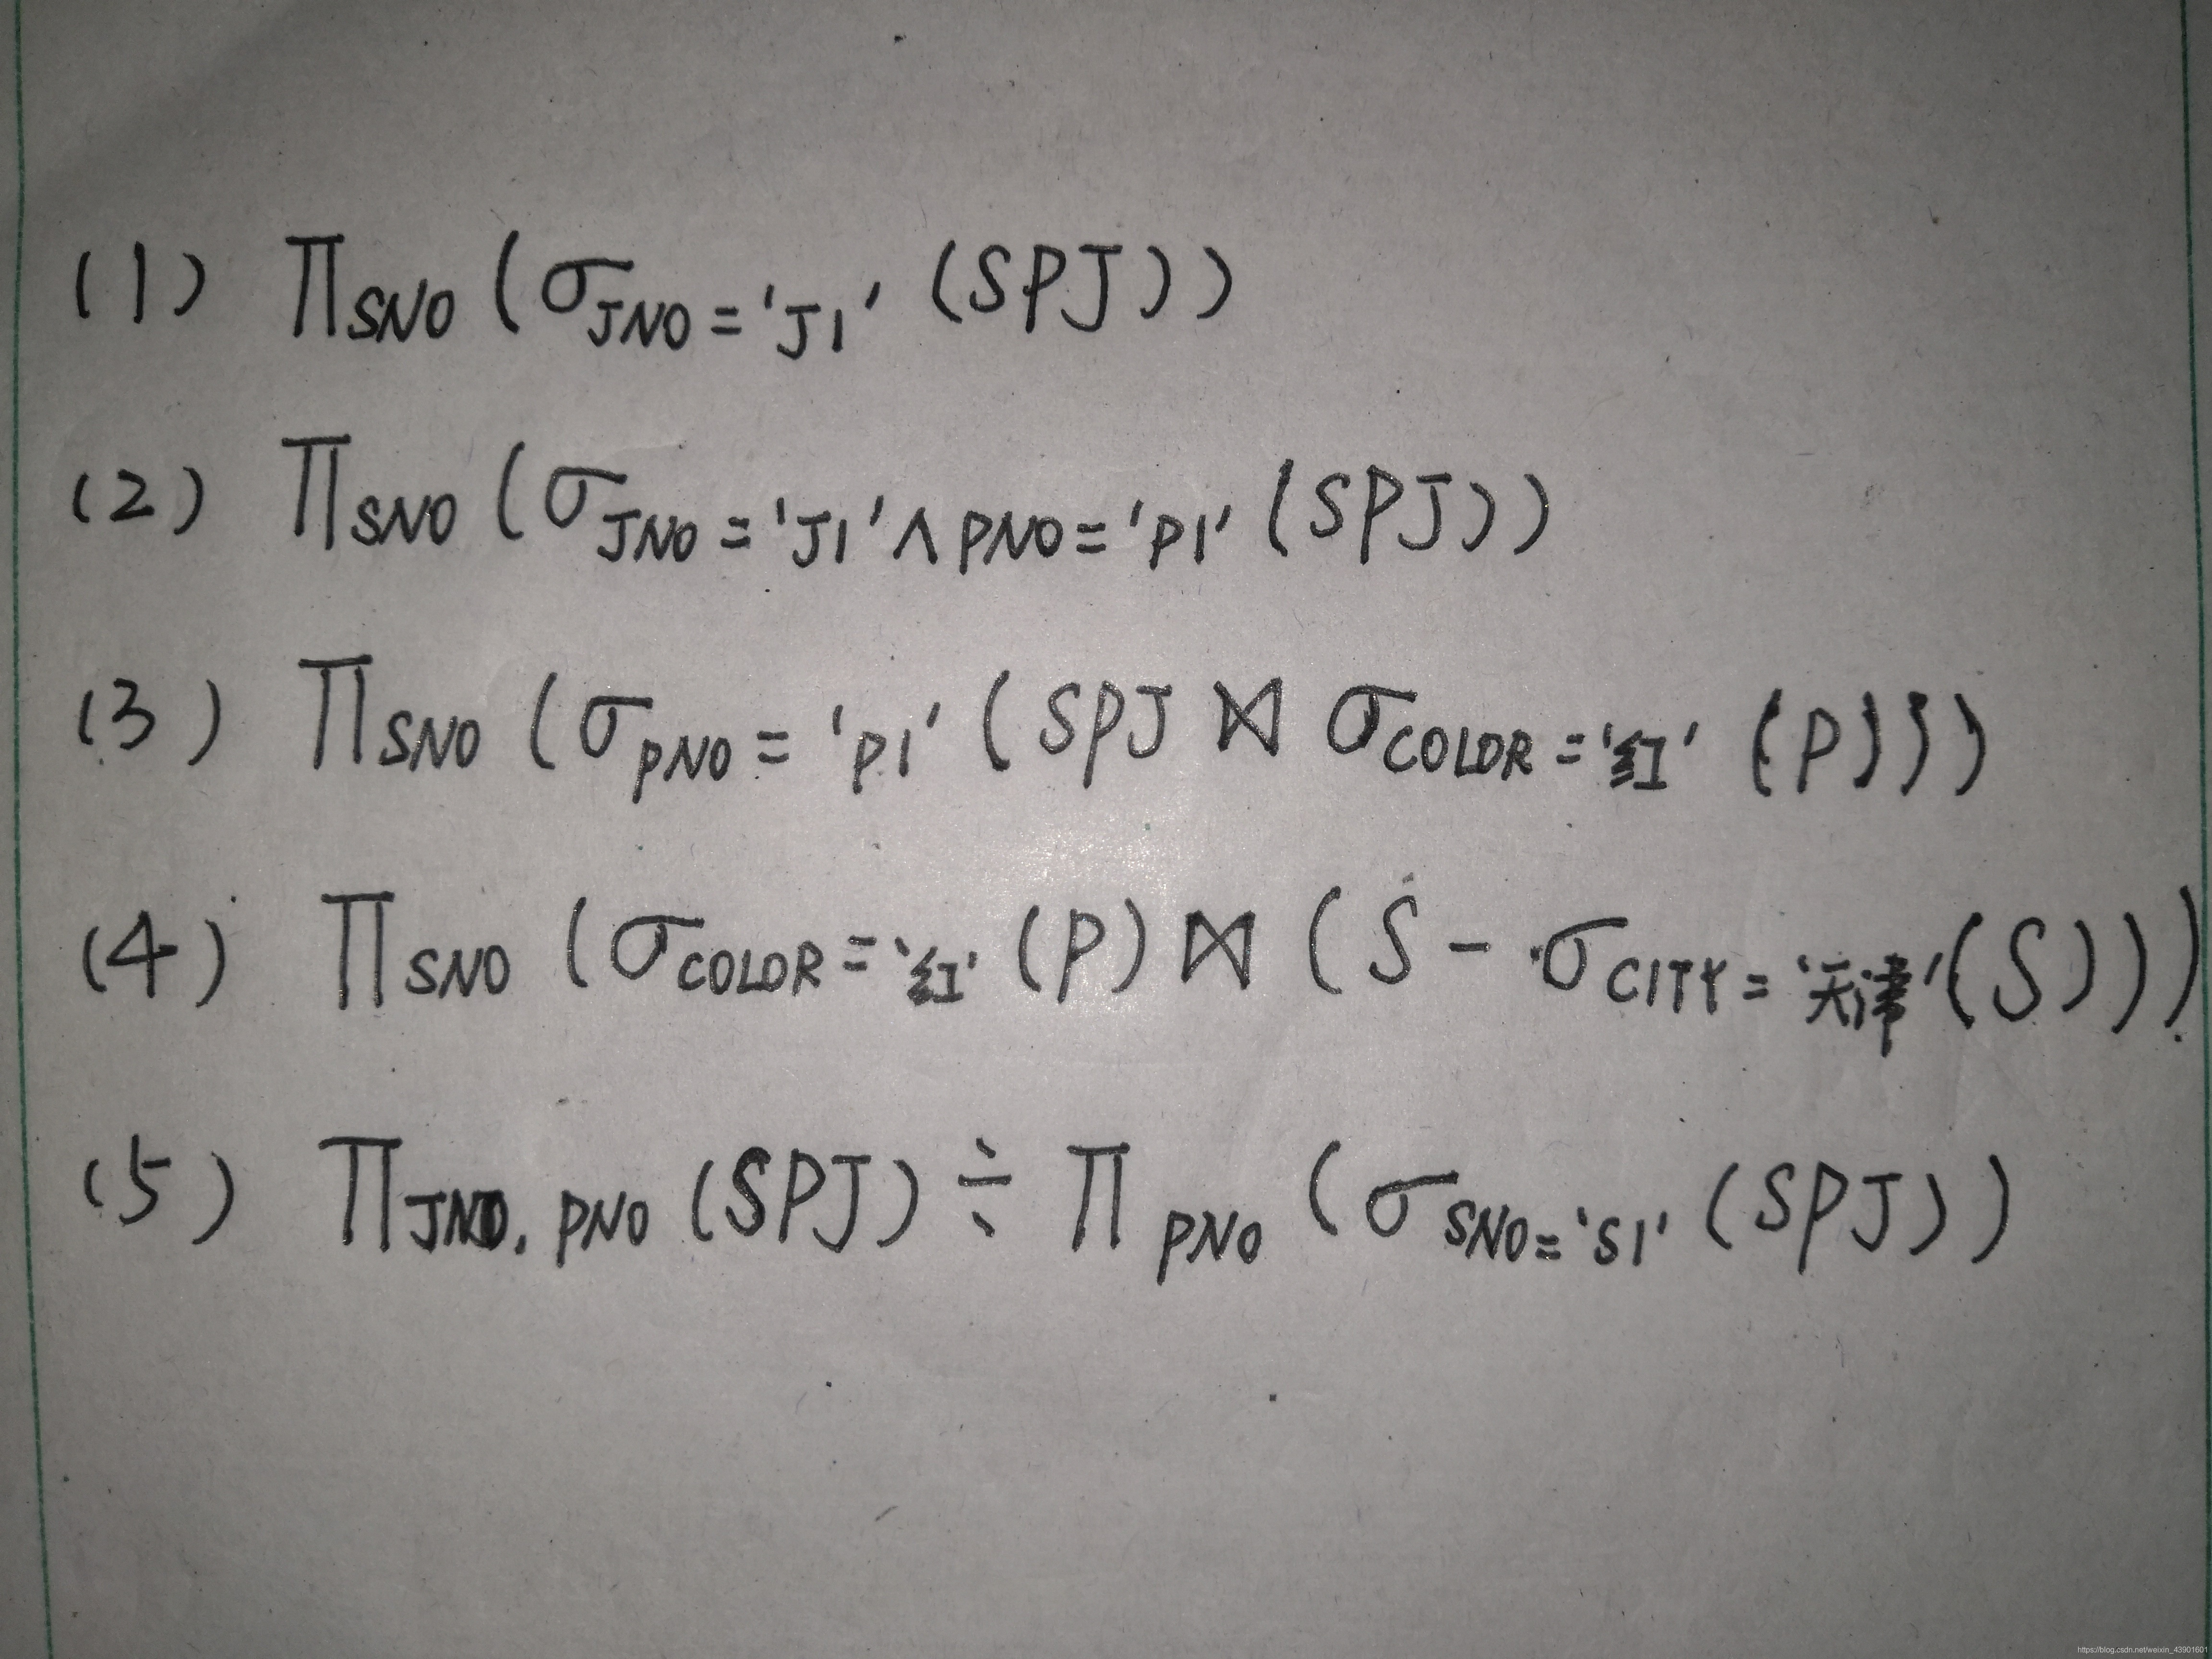 (1) Π SNO (σ JNO = 'J1' (SPJ))
(2) Π SNO (σ JNO = 'J1' ∧ PNO = 'P1' (SPJ))
(3) Π SNO (σ PNO = 'P1' (SPJ ⋈ σ COLOR = '红' (P)))
(4) Π SNO (σ COLOR = '红' (P) ⋈ (S − σ CITY = '天津' (S)))
(5) Π JNO, PNO (SPJ) ÷ Π PNO (σ SNO = 'S1' (SPJ))
https://blog.csdn.net/weixin_43901601